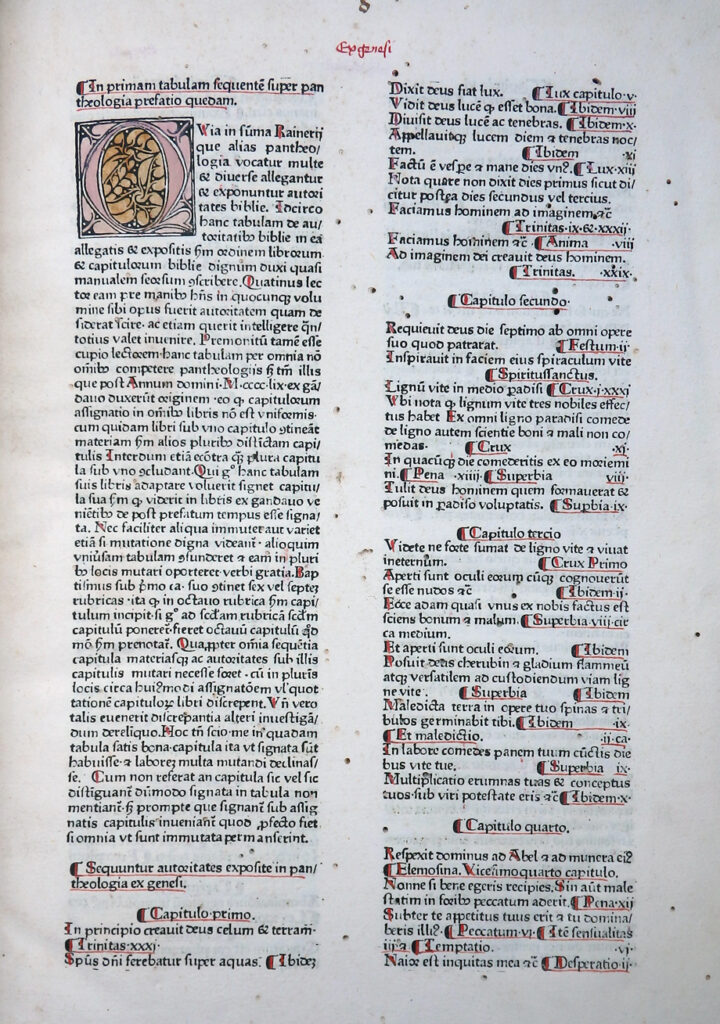 Ex genesi
In primam tabulam sequentē super pan
theologia prefatio quedam.
OVia in sūma Rainerij
que alias pantheo/
logia vocatur multe
& diuerse allegantur
& exponuntur autori
tates biblie. Idcirco
hanc tabulam de au/
toritatibꝰ biblie in ea
allegatis & expositis ẜm ordinem librorum
& capitulorum biblie dignum duxi quasi
manualem seorsum ꝯscribere. Quatinus lec
tor eam pre manibꝰ hn̄s in quocunqꝫ volu
mine sibi opus fuerit autoritatem quam de
siderat scire· ac etiam querit intelligere qn̄/
totius valet inuenire. Premonitū tamē esse
cupio lectorem hanc tabulam per omnia nō
omībꝰ competere pantheologiis ẜꝫ tm̄ illis
que post Annum domini·M·cccc·lix·ex gā/
dauo duxerūt originem·eo qꝫ capitulorum
assignatio in omībꝰ libris nō est vniformis·
cum quidam libri sub vno capitulo ꝯtineāt
materiam ẜm alios pluribꝰ distīctam capi/
tulis Interdum etiā ecōtra qꝫ plura capitu
la sub vno ꝯcludant. Qui gͦ hanc tabulam
suis libris adaptare voluerit signet capitu/
la sua ẜm qꝫ viderit in libris ex gandauo ve
niētibꝰ de post prefatum tempus esse signa/
ta. Nec faciliter aliqua immutet aut variet
etiā si mutatione digna videant᷑· alioquim
vniusam tabulam ꝯfunderet ⁊ eam in pluri
bꝰ locis mutari oporteret·verbi gratia. Bap
tismus sub pͥmo ca· suo ꝯtinet sex vel septeꝫ
rubricas·ita qꝫ in octauo rubrica ẜm capi/
tulum incipit·si gͦ ad scd̄am rubricā scd̄m
capitulū poneret᷑·fieret octauū capitulū qd̄
mō ẜm prenotat᷑. Quaꝓpter om̄ia sequētia
capitula materiasqꝫ ac autoritates sub illis
capitulis mutari necesse foret·cū in pluris
locis circa huiꝰmōi assignatōem vl̓ quot
tationē capituloꝝ libri discrepent. Vn̄ vero
talis euenerit discrepantia alteri inuestigā/
dum derelinquo. Hoc tn̄ scio·me in quadam
tabula satis bona·capitula ita vt signata sūt
habuisse·⁊ laboreꝫ multa mutandi declinas/
se. Cum non referat an capitula sic vel sic
distiguant᷑ dūmodo signata in tabula non
mentiant᷑·ẜꝫ prompte que signant᷑ sub assig
natis capitulis inueniant᷑ quod ꝓfecto fiet
si omnia vt sunt immutata permanserint.
Sequuntur autoritates exposite in pan/
theologia ex genesi.
Capitulo·primo.
In principio creauit deus celum & terram·
Trinitas·xxxj·
Spūs dn̄i ferebatur super aquas. Ibideꝫ
Dixit deus fiat lux. Lux capitulo·v·
Vidit deus lucē qꝫ esset bona. Ibidem·viij
Diuisit deus lucē ac tenebras. Ibidem·x·
Appellauitqꝫ lucem diem ⁊ tenebras noc/
tem. Ibidem ·xi
Factū ē vespe ⁊ mane dies vnꝰ. Lux·xiij
Nota quare non dixit dies primus sicut di/
citur postea dies secundus vel tercius.
Faciamus hominem ad imaginem ⁊c̄
Trinitas·ix·&·xxxij·
Faciamus hominem ⁊c̄ Anima ·viij
Ad imaginem dei creauit deus hominem.
Trinitas. ·xxix·
Capitulo secundo·
Requieuit deus die septimo ab omni opere
suo quod patrarat. Festum·ij·
Inspirauit in faciem eius spiraculum vite
Spiritussanctus.
Lignū vite in medio ꝑadisi Crux·j·xxxj
Vbi nota qꝫ lignum vite tres nobiles effec/
tus habet Ex omni ligno paradisi comede
de ligno autem scientie boni ⁊ mali non co/
medas· Crux ·xj·
In quacūqꝫ die comederitis ex eo moriemi
ni. Pena ·xiij· Superbia viij·
Tulit deus hominem quem formauerat &
posuit in ꝑadiso voluptatis. Suꝑbia·ix·
Capitulo tercio
Videte ne forte sumat de ligno vite ⁊ viuat
ineternum. Crux Primo
Aperti sunt oculi eorum cūqꝫ cognouerūt
se esse nudos ⁊c̄ Ibidem·ij·
Ecce adam quasi vnus ex nobis factus est
sciens bonum ⁊ malum. Superbia·viij·cir
ca medium.
Et aperti sunt oculi eorum. Ibidem
Posuit deus cherubin ⁊ gladium flammeū
atqꝫ versatilem ad custodiendum viam lig
ne vite· Superbia Ibidem
Maledicta terra in opere tuo spinas ⁊ tri/
bulos germinabit tibi. Ibidem ·ix·
Et maledictio. ·ij·ca·
In labore comedes panem tuum cūctis die
bus vite tue. Superbia ix·
Multiplicabo erumnas tuas & conceptus
tuos·sub viri potestate eris ⁊c̄ Ibidem·x·
Capitulo quarto.
Respexit dominus ad Abel ⁊ ad munera eiꝰ
Elemosina. Vicesimoquarto capitulo.
Nonne si bene egeris recipies. Sin aūt male
statim in foribꝰ peccatum aderit. Pena·xij
Subter te appetitus tuus erit ⁊ tu domina/
beris illiꝰ. Peccatum·vj· Itē sensualitas
iij·⁊ Temptatio. ·vj·
Maior est iniquitas mea ⁊c̄ Desperatio·ij·